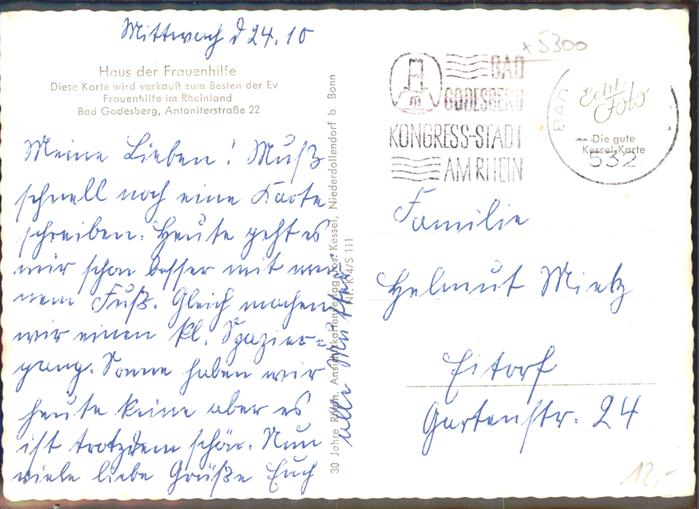 Mittwoch d 24.10
Haus der Frauenhilfe
Diese Karte wird verkauft zum Besten der Ev
Frauenhilfe im Rheinland
Bad Godesberg, Antoniterstraße 22
Meine Lieben! Muß
schnell noch eine Karte
schreiben. Heute geht es
mir schon besser mit mei
nem Fuß. Gleich machen
wir einen kl. Spazier=
gang. Sonne haben wir
heute keine aber es
ist trotzdem schön. Nun
viele liebe Grüße Euch
alle Mutter
30 Jahre Rhein. Ansichtskartenverlag Kessel, Niederdollendorf b Bonn
Nr. K 4/S 111
+5300
BAD
GODESBERG
KONGRESS-STADT
AM RHEIN
BAD
Echt Foto
Die gute
Kessel-Karte
532
Familie
Helmut Mietz
Eitorf
Gartenstr. 24
12,-